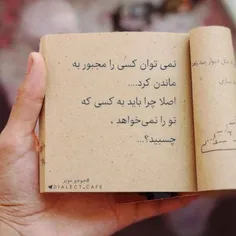 نمی توان کسی را مجبور به
ماندن کرد....
اصلا چرا باید به کسی که
تو را نمی‌خواهد ،
چسبید؟...
#جوجو_مویز
DIALECT_CAFE